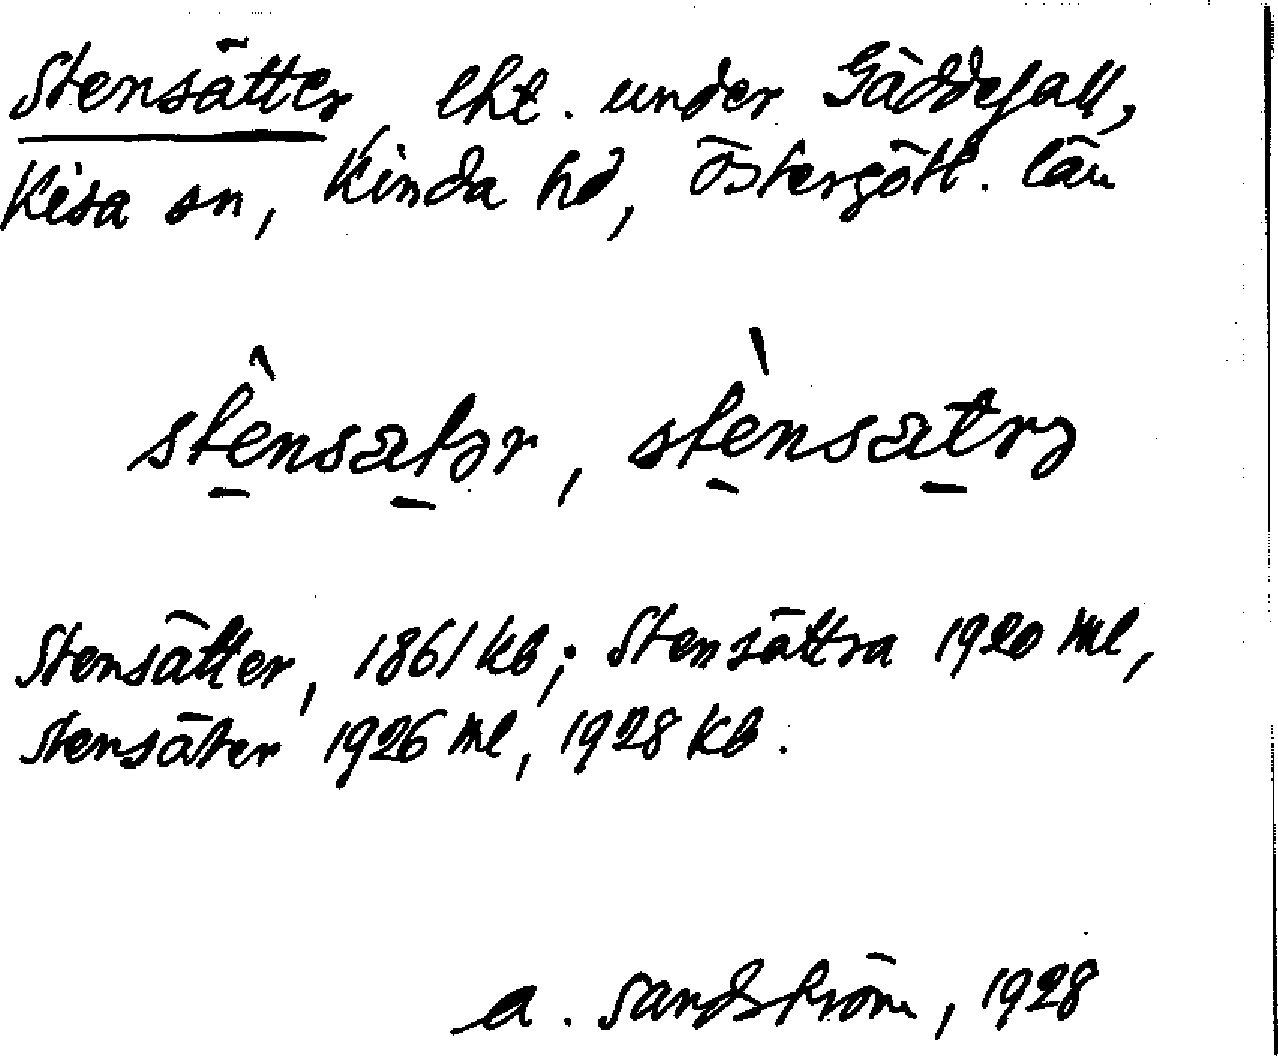 Stensätter, lht. under Gäddefall,
Kisa sn, Kinda hd, Östergötl. län
stènsatər, stènsatrə
Stensätter, 1861 kb; Stensättra 1920 ml,
Stensäter 1926 ml, 1928 kb.
A. Sandström, 1928